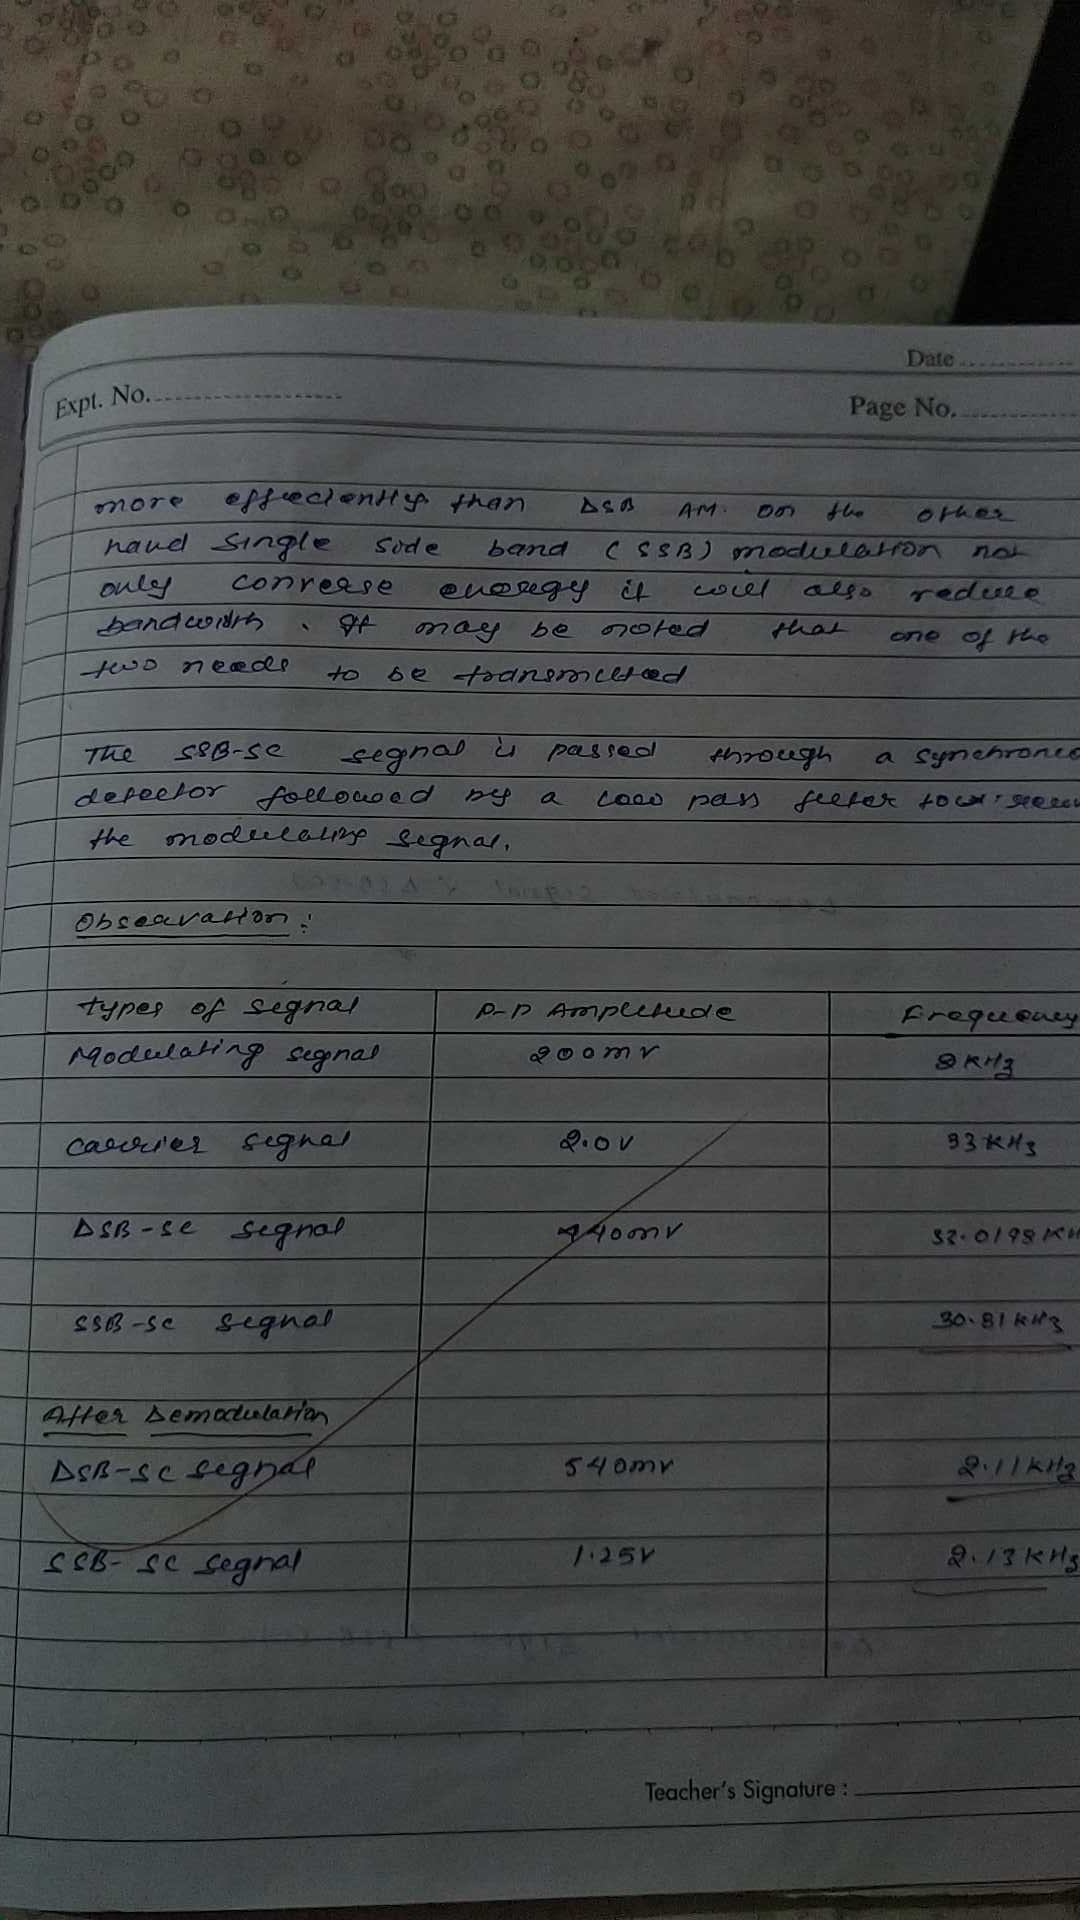 Date
Expt. No.
Page No.
more effeciently than DSB AM. On the other
hand Single Side band (SSB) modulation not
only converse energy it will also reduce
bandwidth. It may be noted that one of the
two needs to be transmitted
The SSB-SC signal is passed through a synchrono
detector followed by a low pass filter to
the modulating signal.
Observation:
Types of signal P-P Amplitude Frequency
Modulating signal 200mV 2KHz
Carrier signal 2.0V 33KHz
DSB-SC signal 440mV 32.0198 KH
SSB-SC signal 30.81 KHz
After Demodulation
DSB-SC signal 540mV 2.11KHz
SSB-SC signal 1.25V 2.13KHz
Teacher's Signature :